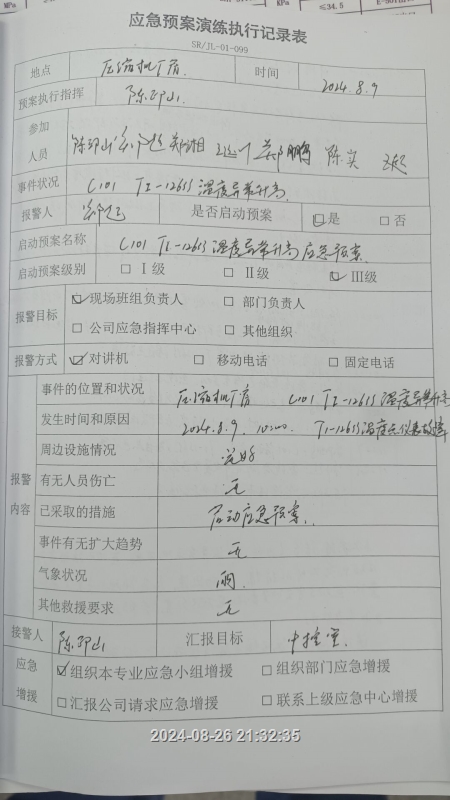 MPa
KPa
≤34.5
应急预案演练执行记录表
SR/JL-01-099
地点 压缩机厂房 时间 2024.8.9
预案执行指挥
参加
人员 陈 郑湘 郑鹏 陈实
事件状况 C101 TI-12615 温度异常升高
报警人 是否启动预案 ☑是 □否
启动预案名称 C101 TI-12615温度异常升高应急预案.
启动预案级别 □Ⅰ级 □Ⅱ级 ☑Ⅲ级
报警目标 ☑现场班组负责人 □部门负责人
□公司应急指挥中心 □其他组织
报警方式 ☑对讲机 □移动电话 □固定电话
报警
内容
事件的位置和状况 压缩机厂房 C101 TI-12615温度异常升高
发生时间和原因 2024.8.9. 10:00. TI-12615温度点仪表故障
周边设施情况 完好
有无人员伤亡 无
已采取的措施 启动应急预案.
事件有无扩大趋势 无
气象状况 雨
其他救援要求 无
接警人 汇报目标 中控室
应急
增援
☑组织本专业应急小组增援 □组织部门应急增援
□汇报公司请求应急增援 □联系上级应急中心增援
2024-08-26 21:32:35